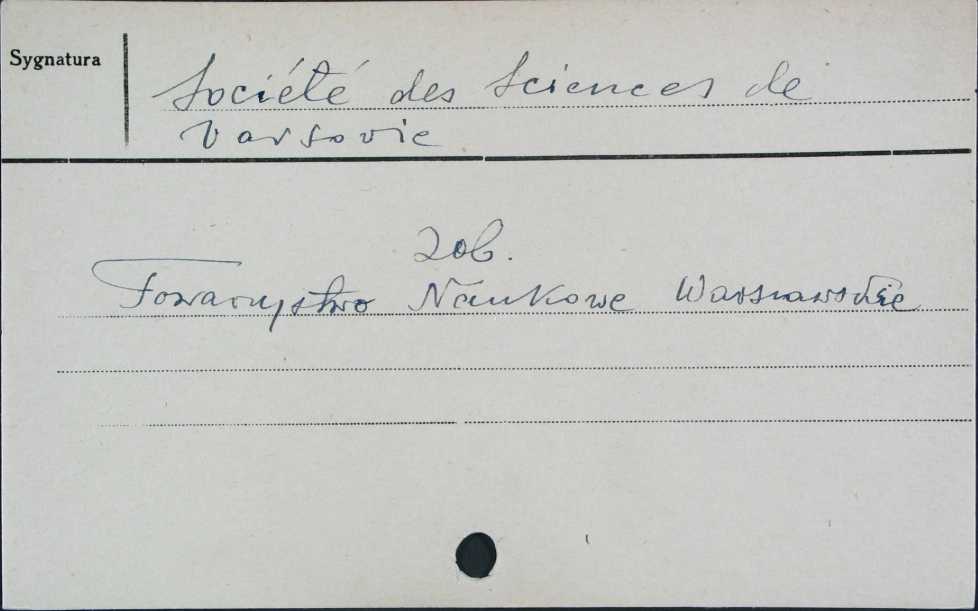 Sygnatura
Société des Sciences de
Varsovie
Zob.
Towarzystwo Naukowe Warszawskie